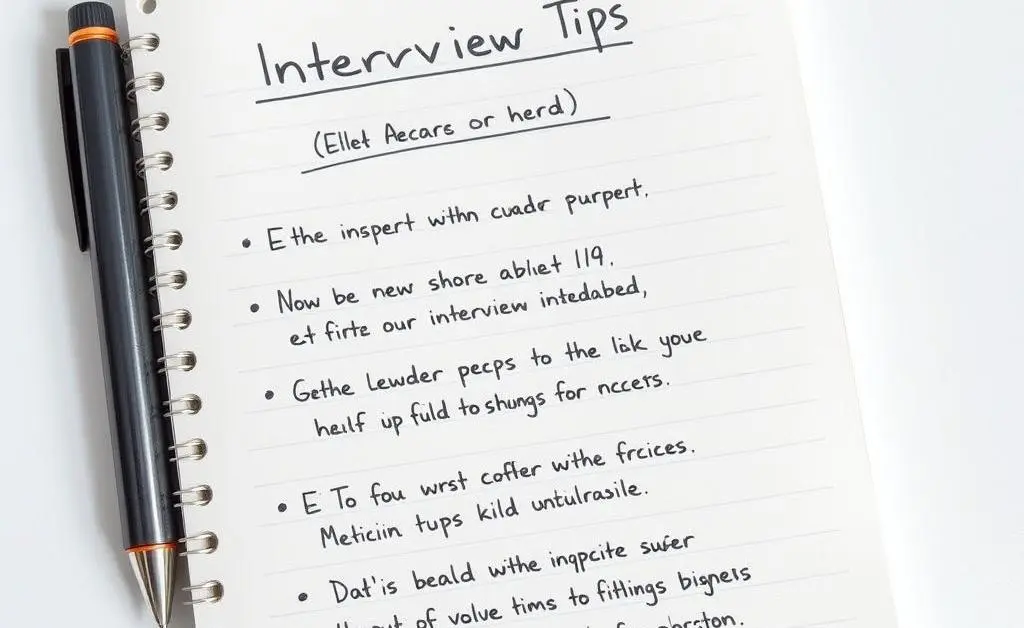 Interrview Tips
(Ellet Aecars or herd)
• E the inspert withn cuadr purpert.
• Now be new shore abliet 119.
et firte our interview intedabed,
• Gethe Lewder pecps to the lik youe
helf up fuld to shungs for nccers.
• E To fou wrst coffer withe frcices.
Meticiin tups kild untulrasile.
• Dat'is beald withe inqpcite sufer
of volve tims to fithings bigners